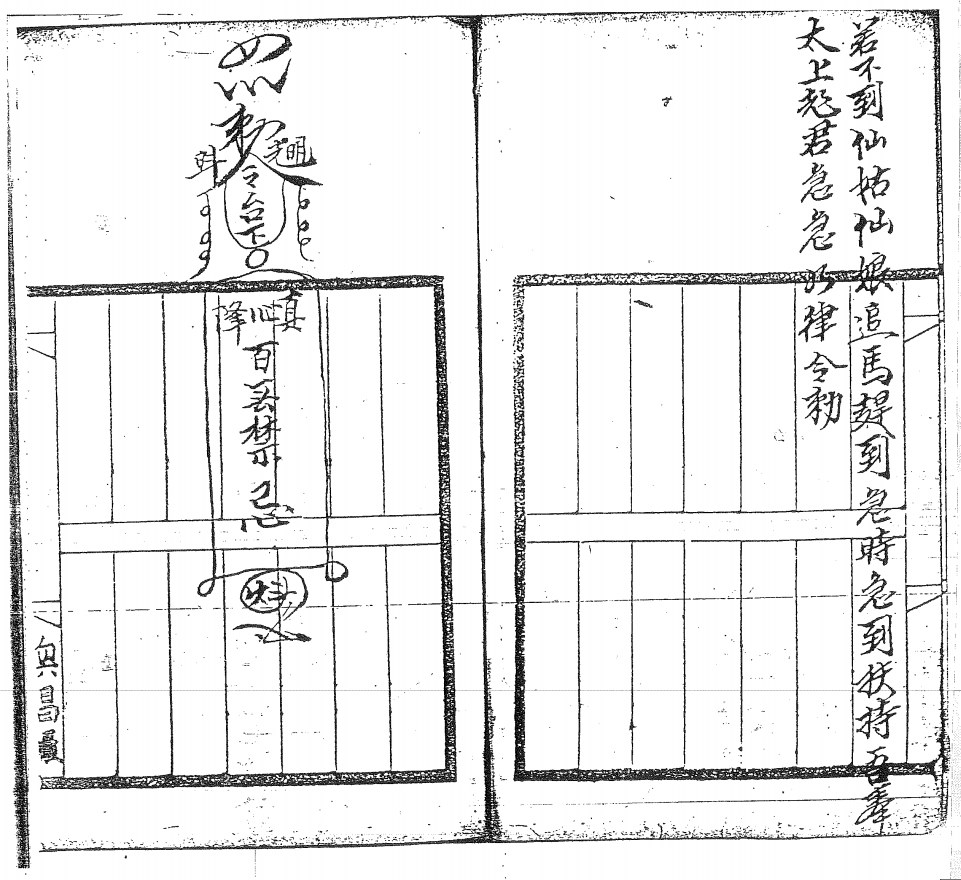 若不到仙姑仙娘追馬趕到急時急到扶持吾奉
太上老君急急如律令勅
勅
令
台
下
真
降
百無禁忌
魁
昌